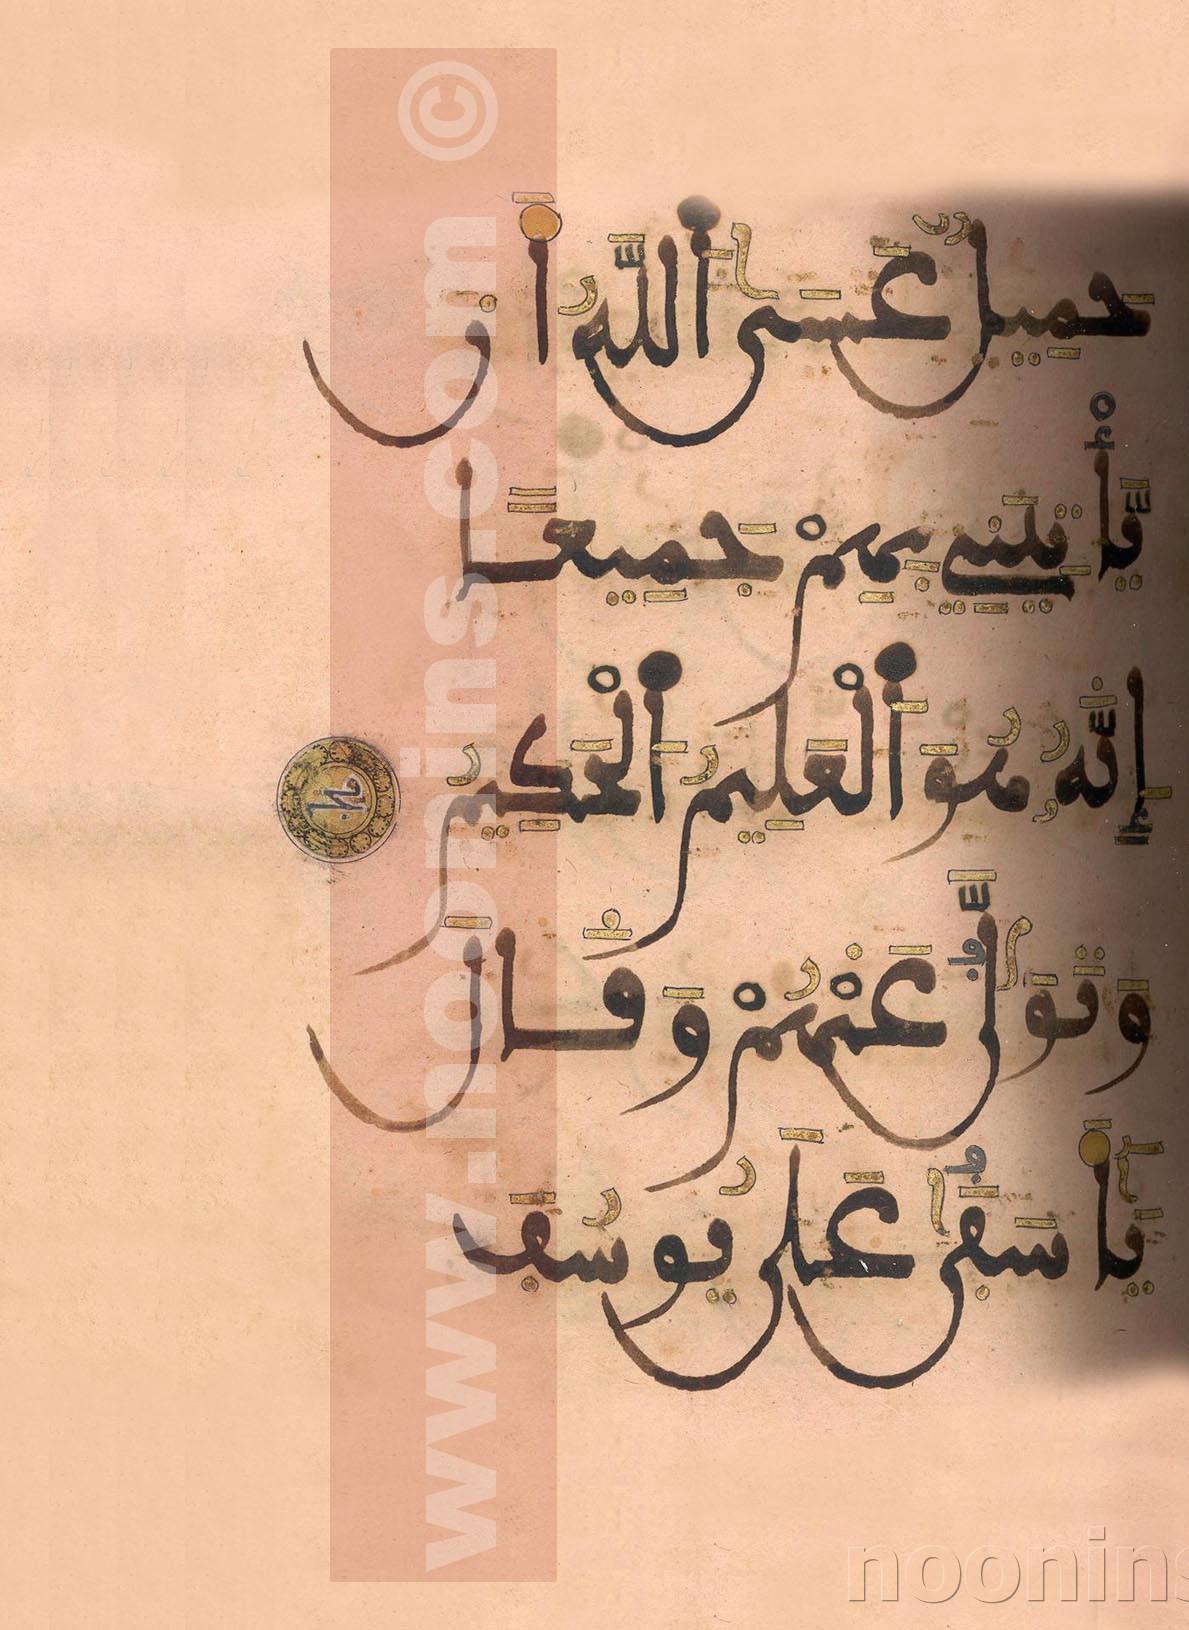 جَمِيلٌ عَسَى ٱللَّهُ أَن
يَّأْتِيَنِي بِهِمْ جَمِيعًا
إِنَّهُ هُوَ ٱلْعَلِيمُ ٱلْحَكِيمُ
وَتَوَلَّىٰ عَنْهُمْ وَقَالَ
يَٰأَسَفَىٰ عَلَى يُوسُفَ
www.noonins.com ©
noonins